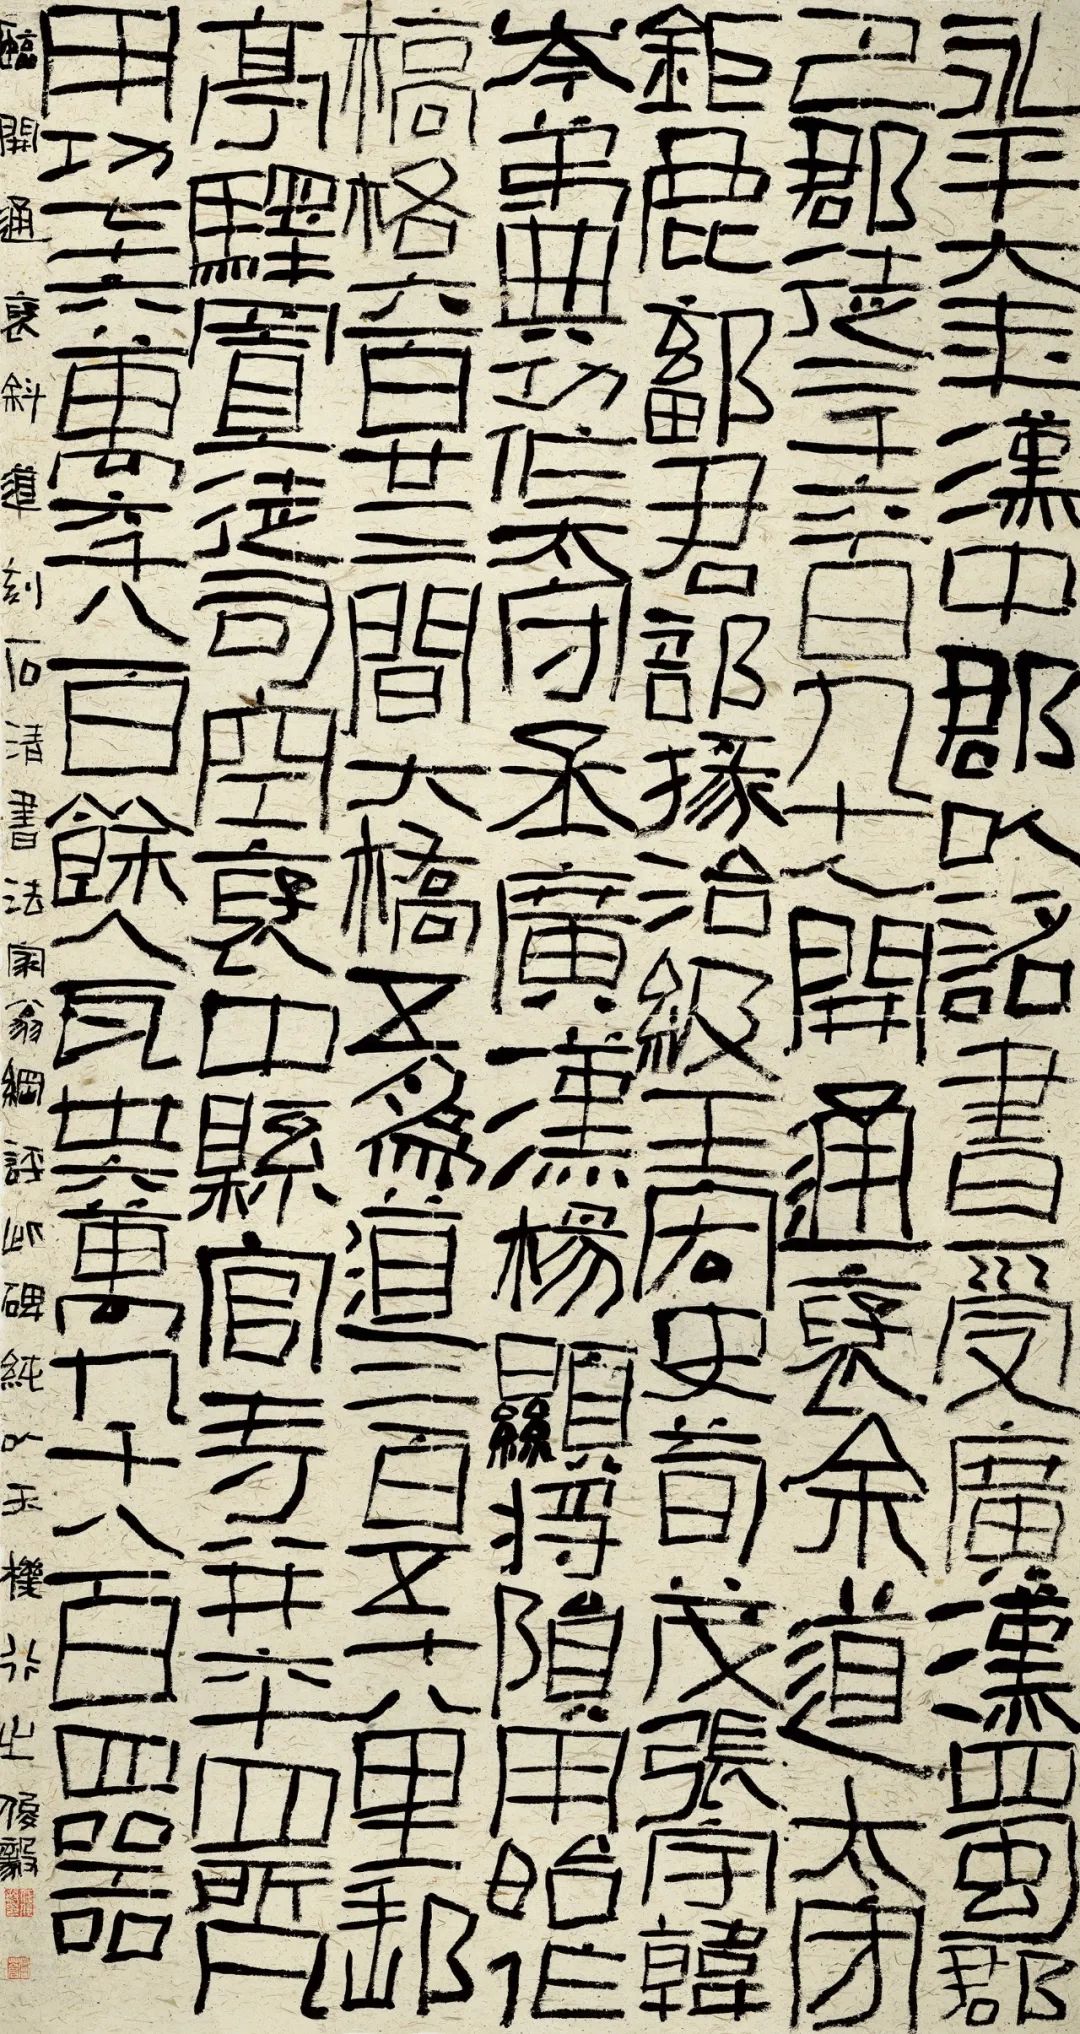 永平六年漢中郡以詔書受廣漢蜀郡
巴郡徒二千六百九十人開通褒余道太守
鉅鹿鄐君部掾治級王宏史荀茂張宇韓
岑弟典功作太守丞廣漢楊顯將隕用始作
橋格六百廿三間大橋五為道二百五十八里郵
亭驛置徒司空褒中縣官寺并六十四所凡
用功七十六萬六千八百餘人瓦卅六萬九千八百四器
臨開通褒斜道刻石清書法家翁綱評此碑純以天機行之俊毅